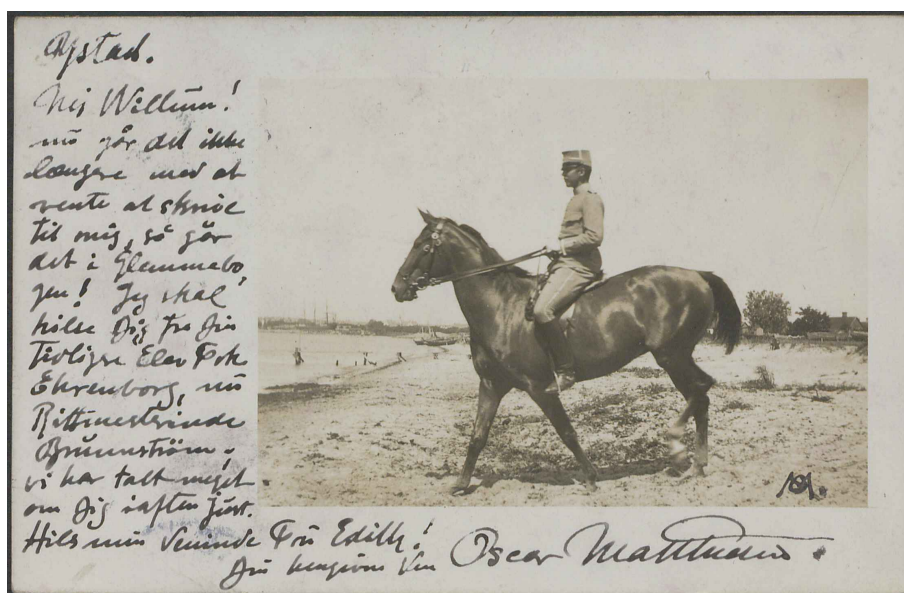 Ystad.
Nej Willum!
nu går det ikke
længere med at
vente at skrive
til mig, så går
det i Glemmebo
gen! Jeg skal
hilse Dig fra Din
tidligere Elev Frk
Ehrenborg, nu
Ritmesterinde
Brunnström -
vi har talt meget
om Dig iaften just.
Hils min Veninde Fru Edith!
Din hengivne Ven Oscar Matthiesen.
OM.